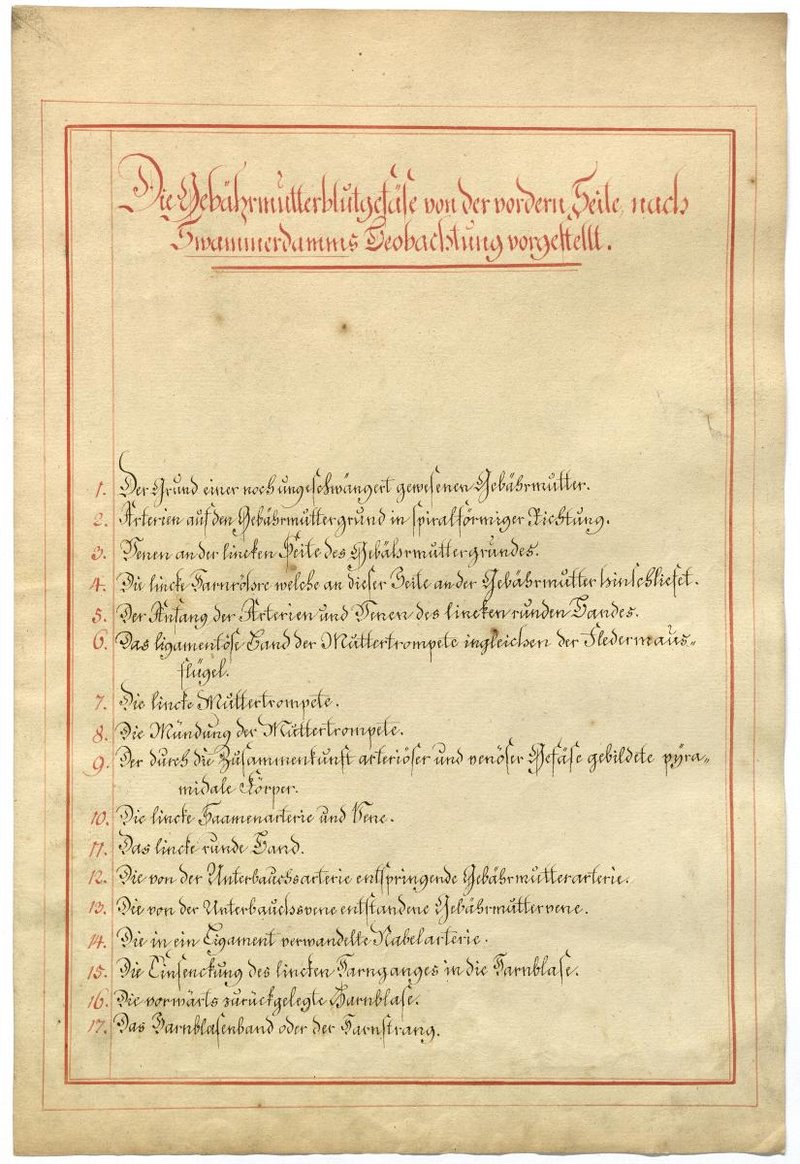 Die Gebährmutterblutgefäse von der vordern Seite, nach
Swammerdamms Beobachtung vorgestellt.
1. Der Grund einer noch ungeschwängert gewesenen Gebährmutter.
2. Arterien auf den Gebährmuttergrund in spiralförmiger Richtung.
3. Venen an der lincken Seite des Gebährmuttergrundes.
4. Die lincke Harnröhre welche an dieser Seite an der Gebährmutter hinschlieset.
5. Der Anfang der Arterien und Venen des lincken runden Bandes.
6. Das ligamentöse Band der Muttertrompete ingleichen der Fledermaus=
flügel.
7. Die lincke Muttertrompete.
8. Die Mündung der Muttertrompete.
9. Der durch die Zusammenkunft arteriöser und venöser Gefäse gebildete pyra=
midale Körper.
10. Die lincke Saamenarterie und Vene.
11. Das lincke runde Band.
12. Die von der Unterbauchsarterie entspringende Gebährmutterarterie.
13. Die von der Unterbauchsvene entstandene Gebährmuttervene.
14. Die in ein Ligament verwandelte Nabelarterie.
15. Die Einsenckung des lincken Harnganges in die Harnblase.
16. Die vorwärts zurückgelegte Harnblase.
17. Das Harnblasenband oder der Harnstrang.